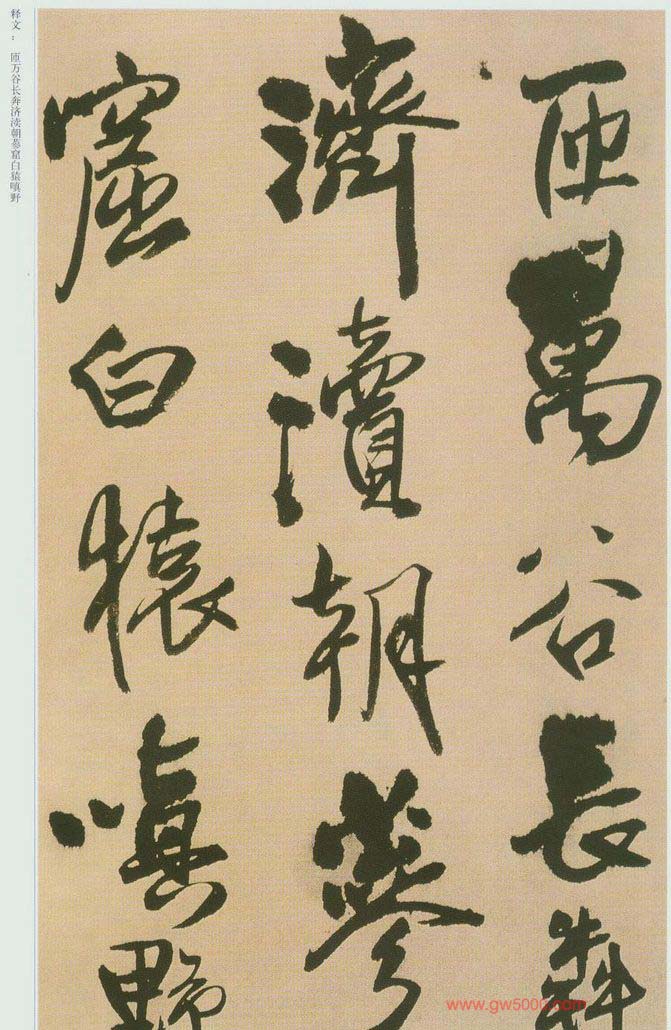 匝萬谷長犇
濟瀆朝蔘
窟白猿嗔野
释文： 匝万谷长奔济渎朝蔘窟白猿嗔野
www.gw5000.com